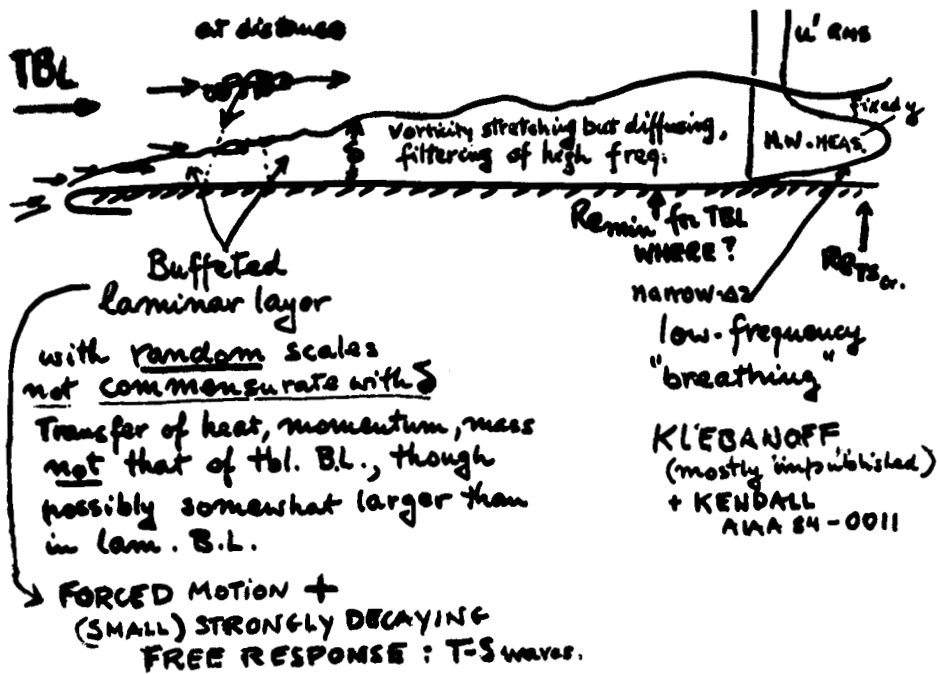 at distance
u' RMS
TBL
fixed y
Vorticity stretching but diffusing,
filtering of high freq.
δ
H.W. MEAS.
Re min for TBL
WHERE?
Re TS cr.
Buffeted
laminar layer
narrow Δz
low-frequency
"breathing"
with random scales
not commensurate with δ
Transfer of heat, momentum, mass
not that of tbl. B.L., though
possibly somewhat larger than
in lam. B.L.
KLEBANOFF
(mostly unpublished)
+ KENDALL
AIAA 84-0011
FORCED MOTION +
(SMALL) STRONGLY DECAYING
FREE RESPONSE : T-S waves.